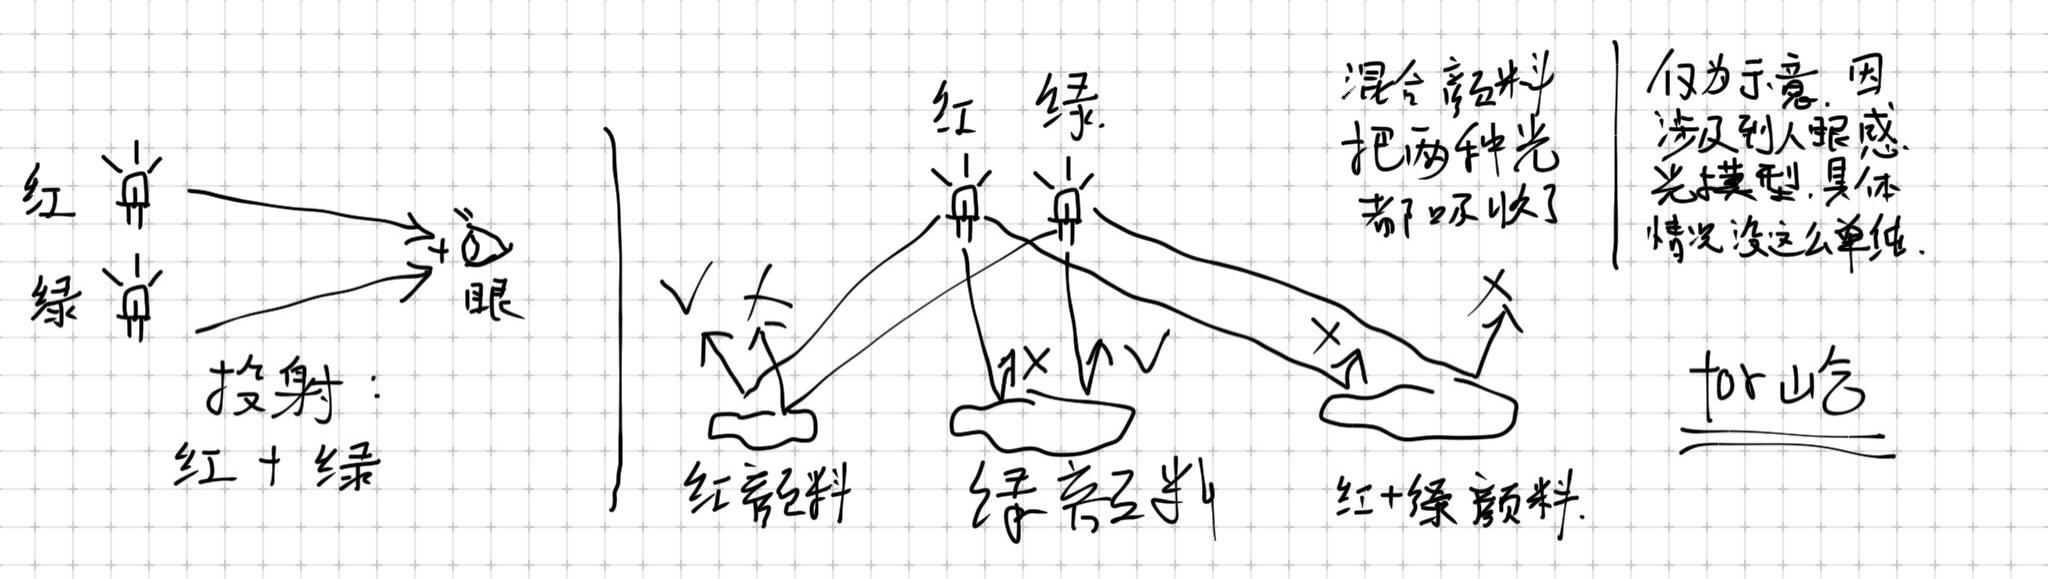 红
绿
眼
投射：
红＋绿
红 绿
红颜料
绿颜料
红＋绿颜料.
混合颜料
把两种光
都吸收了
仅为示意，因
涉及到人眼感
光模型，具体
情况没这么单纯.
for 山谷